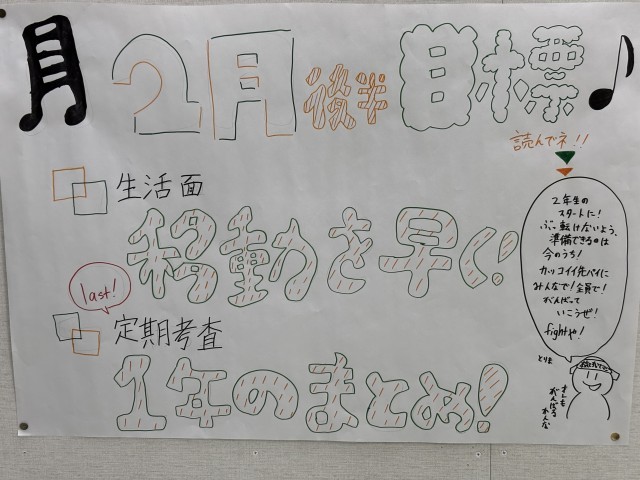 2月後半目標
読んでネ!!
生活面
移動を早く!
last!
定期考査
1年のまとめ!
2年生の
スタートに!
ぶっ転けないよう、
準備できるのは
今のうち!
カッコイイ先パイに
みんなで!全員で!
がんばって
いこうぜ!
fightや!
とりま
がんばる